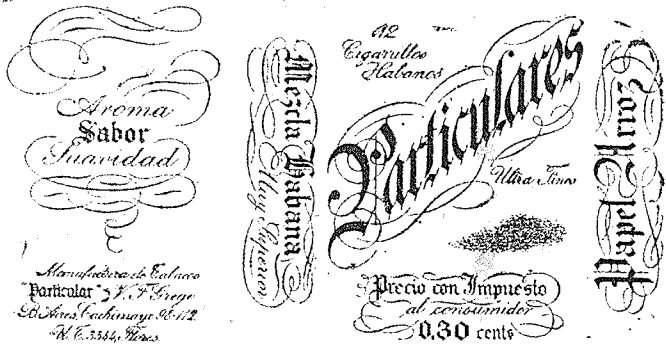 Aroma
Sabor
Suavidad
Manufactura de Tabaco
"Particular" V. F. Grego
Bs. Aires, Cachimayo 96-112
U. T. 3344, Flores
Mezcla Habana
Muy Superior
Cigarrillos
Habanos
Particulares
Ultra Finos
Precio con Impuesto
al consumidor
0.30 cents
Papel Arroz